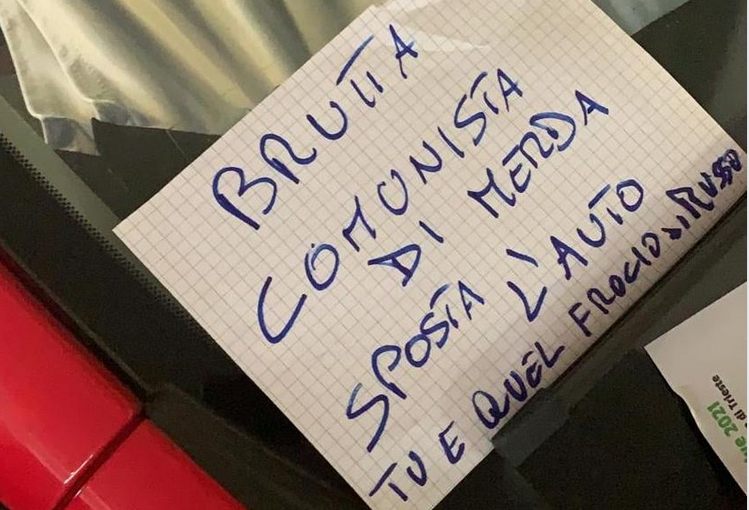 BRUTTA
COMUNISTA
DI MERDA
SPOSTA L'AUTO
TU E QUEL FROCIO DI RUSSO
2021
di Trieste